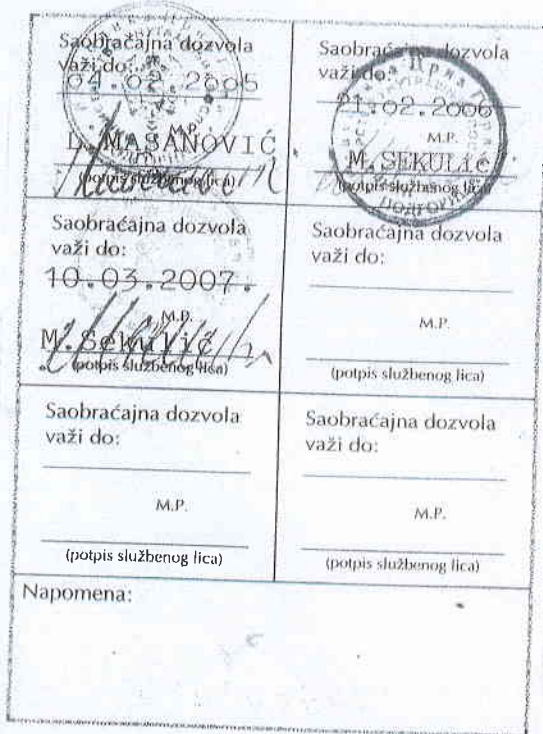 Saobraćajna dozvola
važi do:
04.02.2005
M.P.
L. MAŠANOVIĆ
(potpis službenog lica)
Saobraćajna dozvola
važi do:
21.02.2006
M.P.
M. SEKULIĆ
(potpis službenog lica)
Црна
ПОДГОРИ
Saobraćajna dozvola
važi do:
10.03.2007.
M.P.
M. Sekulić
(potpis službenog lica)
Saobraćajna dozvola
važi do:
M.P.
(potpis službenog lica)
Saobraćajna dozvola
važi do:
M.P.
(potpis službenog lica)
Saobraćajna dozvola
važi do:
M.P.
(potpis službenog lica)
Napomena: